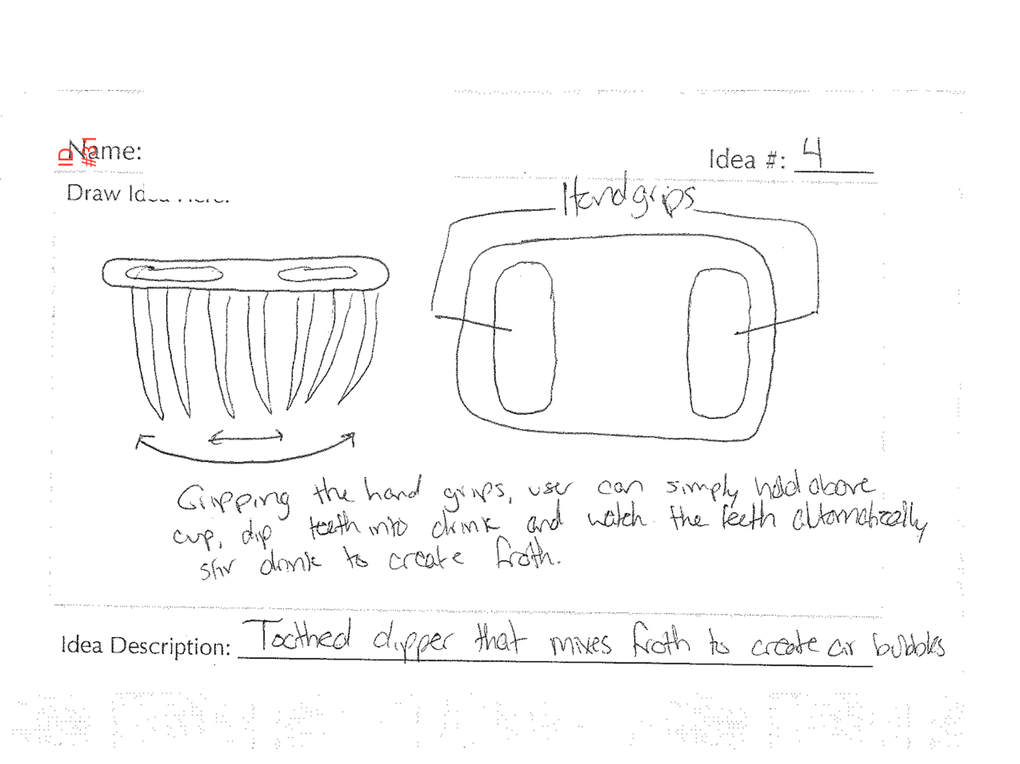 Name:
ID #31
Idea #: 4
Draw Idea Here:
Hand grips
Gripping the hand grips, user can simply hold above
cup, dip teeth into drink and watch the teeth automatically
stir drink to create froth.
Idea Description: Toothed dipper that mixes froth to create air bubbles